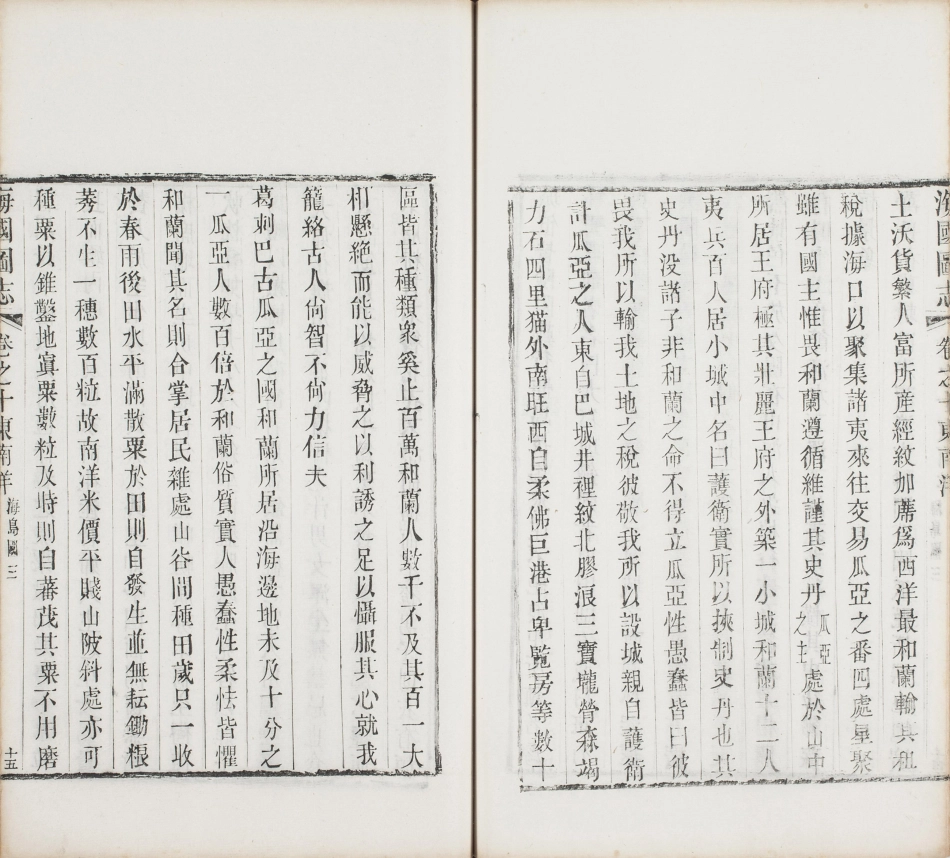 海國圖志 卷之十 東南洋
土沃貨繁人富所産經紋加蓆爲西洋最和蘭輸其租
稅據海口以聚集諸夷來往交易瓜亞之番四處星聚
雖有國主惟畏和蘭遵循維謹其史丹瓜亞之主處於山中
所居王府極其壯麗王府之外築一小城和蘭十二人
夷兵百人居小城中名曰護衛實所以挾制史丹也其
史丹没諸子非和蘭之命不得立瓜亞性愚蠢皆曰彼
畏我所以輸我土地之稅彼敬我所以設城親自護衛
計瓜亞之人東自巴城井裡紋北膠浪三寶壠膋森竭
力石四里猫外南旺西自柔佛巨港占卑覧房等數十
區皆其種類衆奚止百萬和蘭人數千不及其百一大
相懸絶而能以威脅之以利誘之足以懾服其心就我
籠絡古人尙智不尙力信夫
葛剌巴古瓜亞之國和蘭所居沿海邊地未及十分之
一瓜亞人數百倍於和蘭俗質實人愚蠢性柔怯皆懼
和蘭聞其名則合掌居民雜處山谷間種田歲只一收
於春雨後田水平滿散粟於田則自發生並無耘鋤粻
莠不生一穗數百粒故南洋米價平賤山陂斜處亦可
種粟以錐鑿地寘粟數粒及時則自蕃茂其粟不用磨
海國圖志 卷之十 東南洋 海島國三 十五